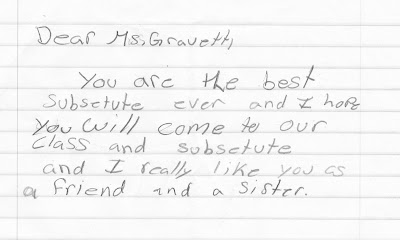 Dear Ms. Gravett,
You are the best
Substute ever and I hope
you will come to our
Class and subsetute
and I really like you as
a friend and a sister.